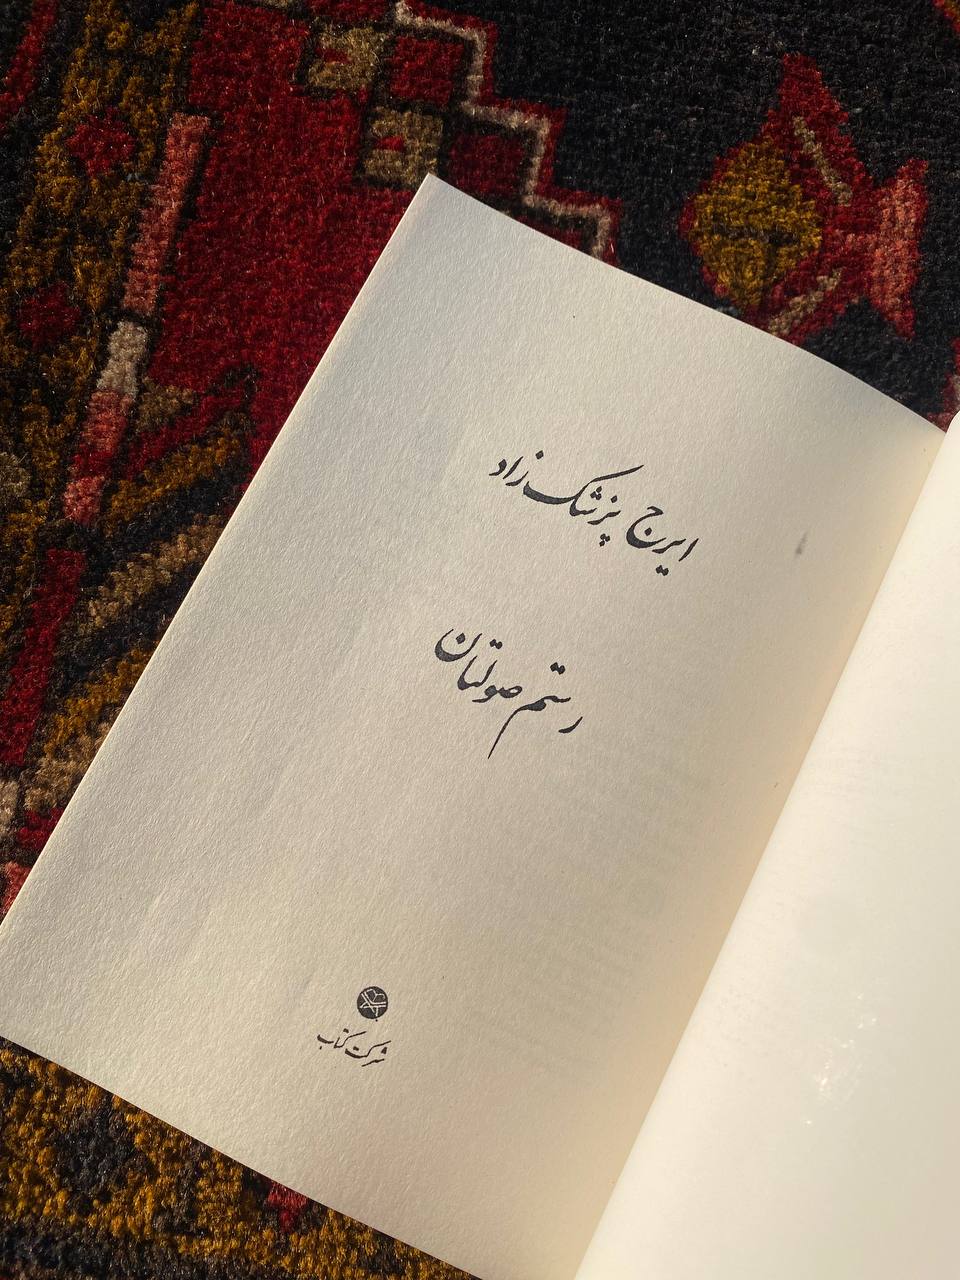 ایرج پزشک‌زاد
رستم صولتان
شرکت کتاب